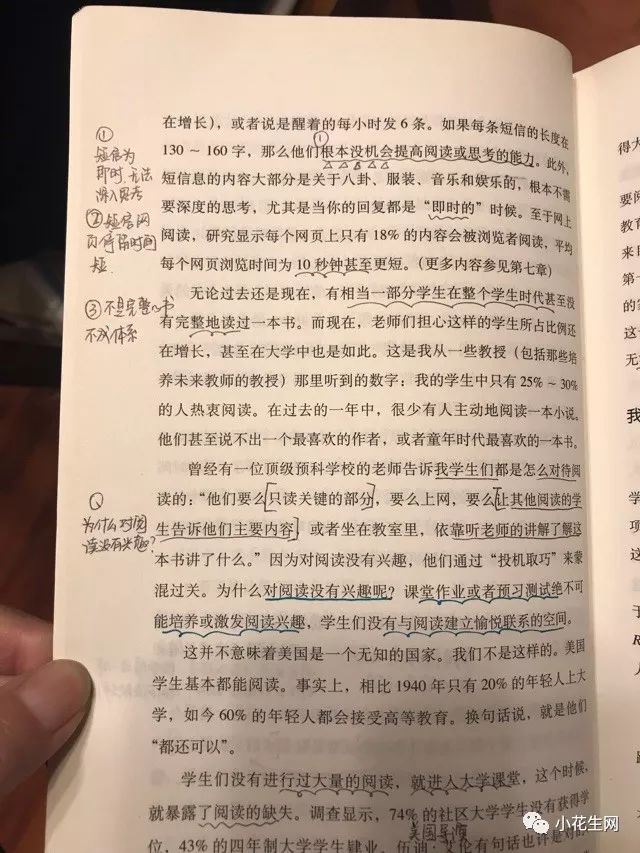 在增长），或者说是醒着的每小时发 6 条。如果每条短信的长度在
①
130～160 字，那么他们根本没机会提高阅读或思考的能力。此外，
短信息的内容大部分是关于八卦、服装、音乐和娱乐的，根本不需
要深度的思考，尤其是当你的回复都是“即时的”时候。至于网上
阅读，研究显示每个网页上只有 18% 的内容会被浏览者阅读，平均
每个网页浏览时间为 10 秒钟甚至更短。（更多内容参见第七章）
无论过去还是现在，有相当一部分学生在整个学生时代甚至没
有完整地读过一本书。而现在，老师们担心这样的学生所占比例还
在增长，甚至在大学中也是如此。这是我从一些教授（包括那些培
养未来教师的教授）那里听到的数字：我的学生中只有 25%～30%
的人热衷阅读。在过去的一年中，很少有人主动地阅读一本小说。
他们甚至说不出一个最喜欢的作者，或者童年时代最喜欢的一本书。
曾经有一位顶级预科学校的老师告诉我学生们都是怎么对待阅
读的：“他们要么只读关键的部分，要么上网，要么让其他阅读的学
生告诉他们主要内容，或者坐在教室里，依靠听老师的讲解了解这
本书讲了什么。”因为对阅读没有兴趣，他们通过“投机取巧”来蒙
混过关。为什么对阅读没有兴趣呢？课堂作业或者预习测试绝不可
能培养或激发阅读兴趣，学生们没有与阅读建立愉悦联系的空间。
这并不意味着美国是一个无知的国家。我们不是这样的。美国
学生基本都能阅读。事实上，相比 1940 年只有 20% 的年轻人上大
学，如今 60% 的年轻人都会接受高等教育。换句话说，就是他们
“都还可以”。
学生们没有进行过大量的阅读，就进入大学课堂，这个时候，
就暴露了阅读的缺失。调查显示，74% 的社区大学学生没有获得学
位，43% 的四年制大学学生肄业。伍迪·艾伦有句话也许是对的
美国导演
①
短信为
即时，无法
深入思考
②短信网
页停留时间
短
③不是完整的书
不成体系
Q
为什么对阅
读没有兴趣？
得大
要阅
教育
来自
第一
的
这
无
我
学
项
这
于
小花生网